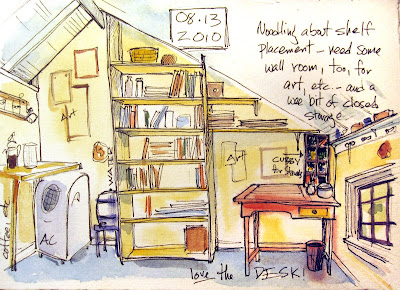 08.13
2010
Noodling about shelf
placement – need some
wall room, too, for
art, etc. – and a
wee bit of closed
storage
Art
Art
CUBBY
for
coffee etc
AC
love the DESK!